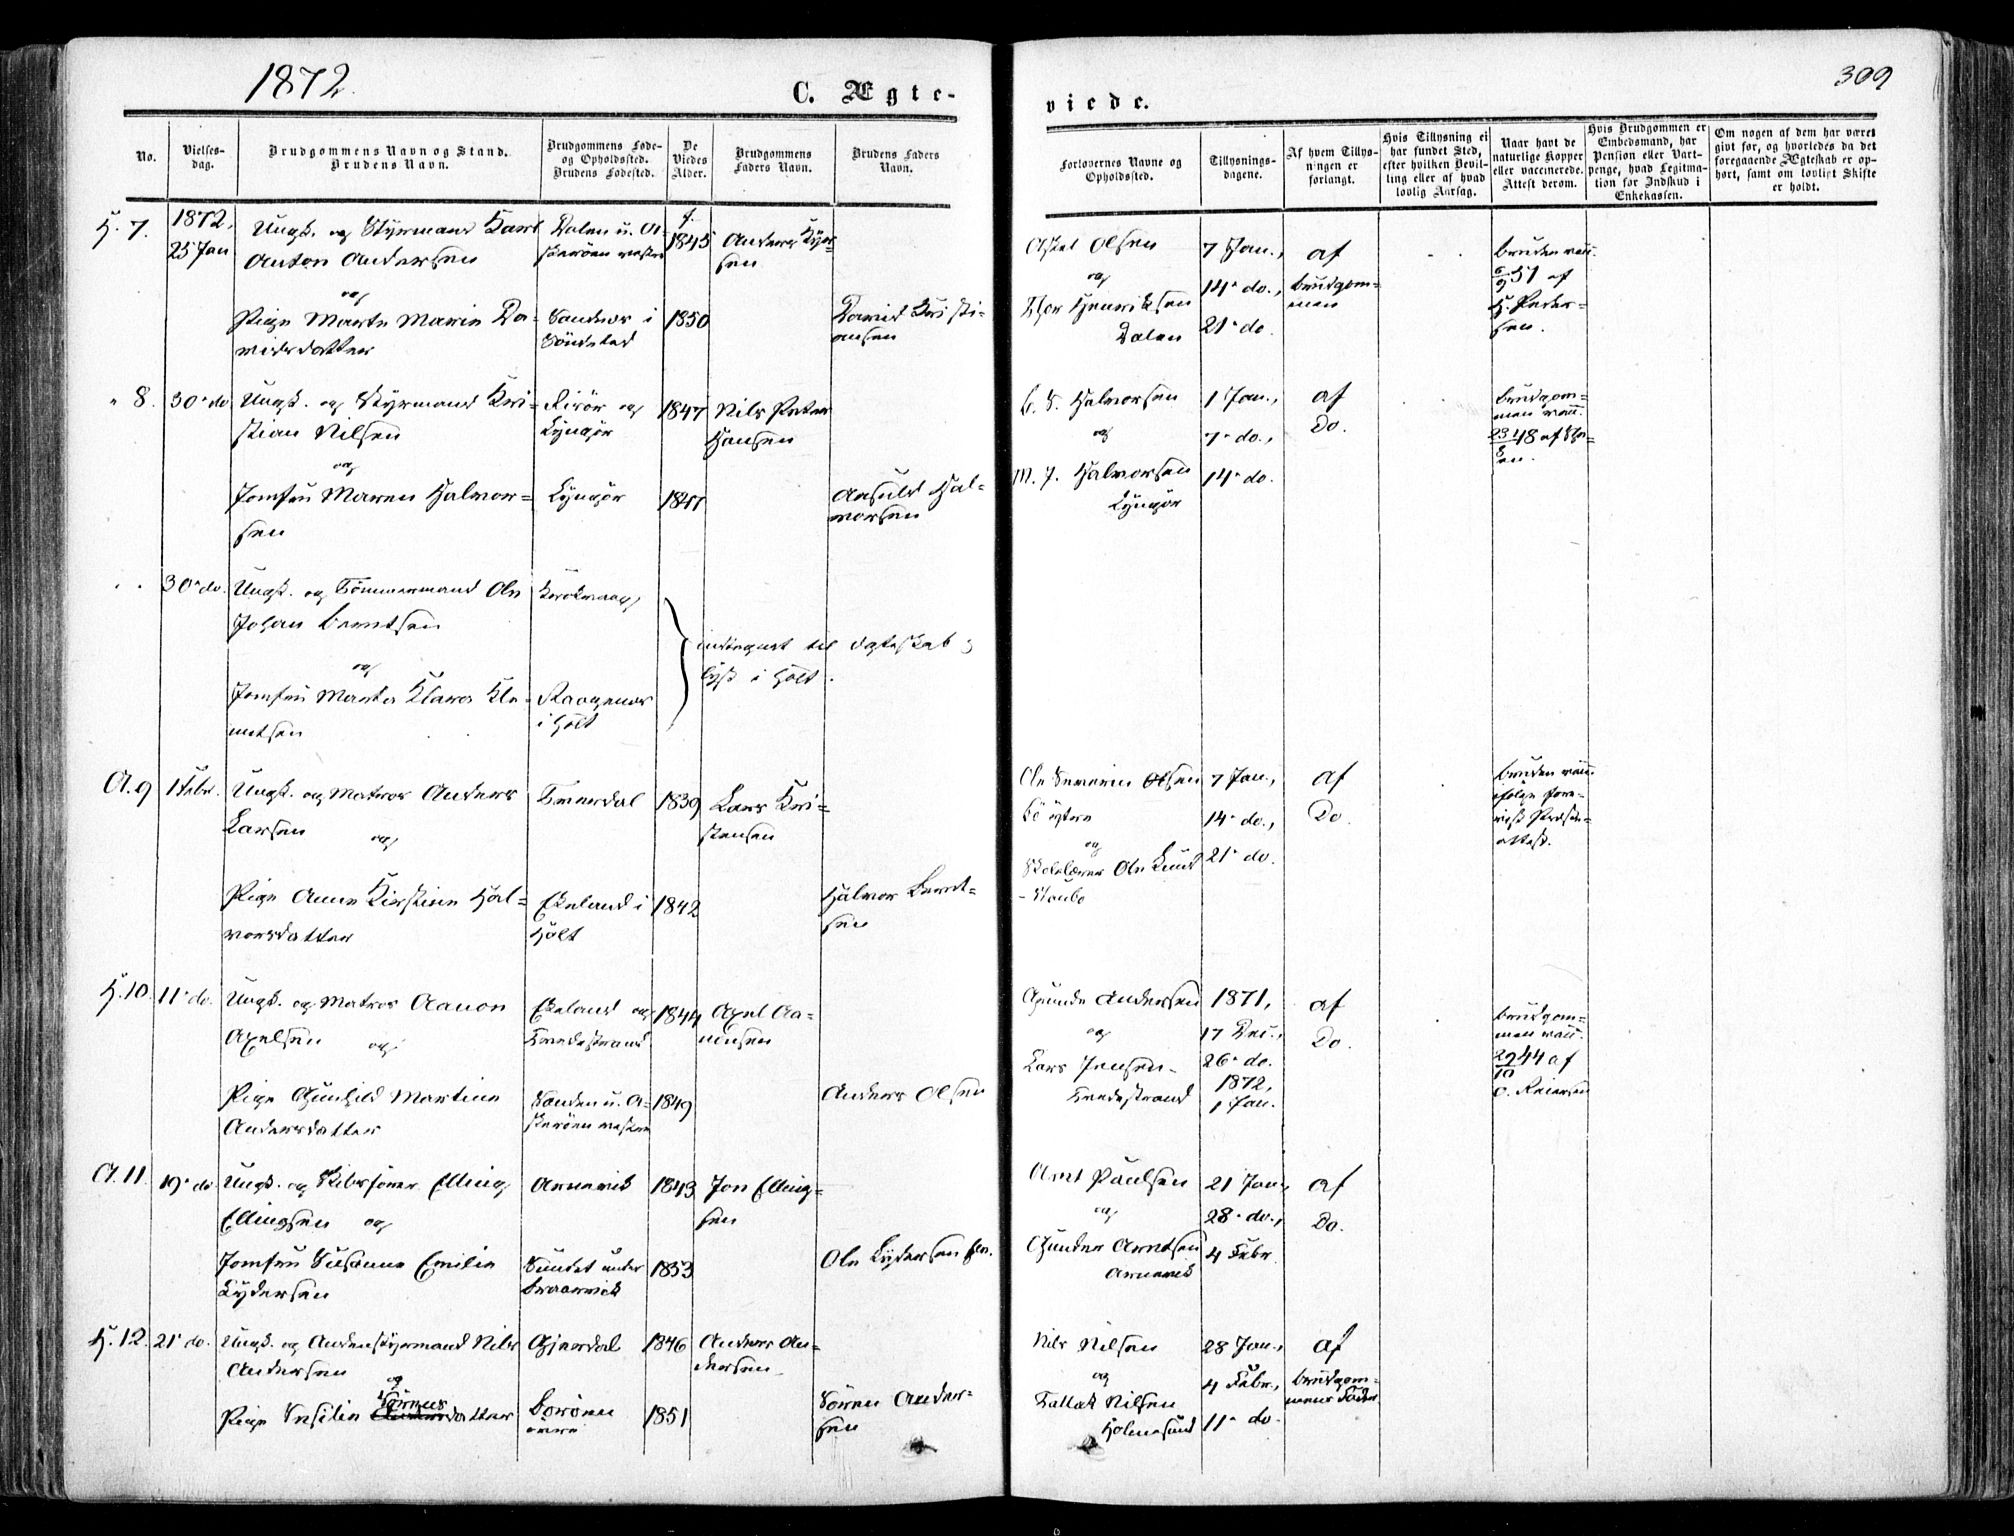 1872.
C. Ægte-
viede.
309
No.
Vielses-
dag.
Brudgommens Navn og Stand.
Brudens Navn.
Brudgommens Føde-
og Opholdssted.
Brudens Fødested.
De
Viedes
Alder.
Brudgommens
Faders Navn.
Brudens Faders
Navn.
Forlovernes Navne og
Opholdssted.
Tillysnings-
dagene.
Af hvem Tillys-
ningen er
forlangt.
Hvis Tillysning ei
har fundet Sted,
efter hvilken Bevil-
ling eller af hvad
lovlig Aarsag.
Naar havt de
naturlige Kopper
eller vaccinerede.
Attest derom.
Hvis Brudgommen er
Embedsmand, har
Pension eller Vart-
penge, hvad Legitima-
tion for Indskud i
Enkekassen.
Om nogen af dem har været
givt før, og hvorledes da det
foregaaende Ægteskab er op-
hørt, samt om lovligt Skifte
er holdt.
H. 7.
1872.
25 Jan
Ungk. og Styrmand
Anton Andersen
og
Pige Marte Marie Da-
vidsdatter
Dalen u. A-
skerøen vestre
Sandnes i
Søndeled
1845
1850
Anders
sen
David Kristi-
ansen
Aslak Olsen
og
Thor Henriksen
Dalen
7 Jan.,
14. do.,
21. do.
af
brudgom-
men
bruden vacc.
6/9 51 af
H. Peder-
sen.
" 8.
30. do
Ungk. og Styrmand Kri-
stian Nilsen
og
Jomfru Maren Halvor-
sen
Risør og
Lyngør
Lyngør
1847
1847
Nils Peter
Hansen
Halvorsen
Hal-
vorsen
og
M. J. Halvorsen
Lyngør
1 Jan.,
7. do.,
14. do.
af
Do.
brudgom-
men vacc.
30. do.
Ungk. og Tømmermand Ole
Johan Berntsen
og
Jomfru Marta Klara Kle-
metsen
Krokvaag
i Holt
indtegnet til ægteskab &
lyst i Holt.
A. 9
1 Febr.
Ungk. og Matros Anders
Larsen og
Pige Anne Kirstine Hal-
vorsdatter
Tverdal
Ekeland i
Holt
1839
1842
Lars Kri-
stensen
Halvor Bernt-
sen
Ole Severin Olsen
og
Skolelærer Ole Knut
Staubo
7 Jan.,
14. do.,
21. do.
af
Do.
bruden vacc.
ifølge
attest.
H. 10.
11. do.
Ungk. og Matros Aanon
Axelsen og
Pige Gunhild Martine
Andersdatter
Ekeland og
Tvedestrand
Sanden u. A-
skerøen vestre
1844
1849
Axel Aa-
nonsen
Anders Olsen
Gunde Andersen
og
Lars Jensen
Tvedestrand
1871,
17 Dec.,
26. do.
1872,
1 Jan.
af
Do.
brudgom-
men vacc.
29/10 44 af
O. Reiersen
A. 11.
19. do
Ungk. og Skibsfører Elling
Ellingsen og
Jomfru Susanne Emilie
Lydersen
Arnevik
Sundet under
Braarvik
1843
1853
Jon Elling-
sen
Ole Lydersen
Arnt Paulsen
og
Gunder Arntsen
Arnevik
21 Jan.,
28. do.,
4 Febr.
af
Do.
H. 12.
21. do.
Ungk. og Andenstyrmand Nils
Andersen
og
Sørens
Pige Insilie Andersdatter
Gjerdal
Borøen
øvre
1846
1851
Anders An-
dersen
Søren Ander-
sen
Nils Nilsen
og
Tallak Nilsen
Holmesund
28 Jan.,
4 Febr.,
11. do.
af
brudgom-
mens Fader